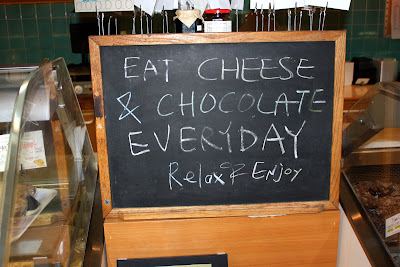 EAT CHEESE
& CHOCOLATE
EVERYDAY
Relax & Enjoy